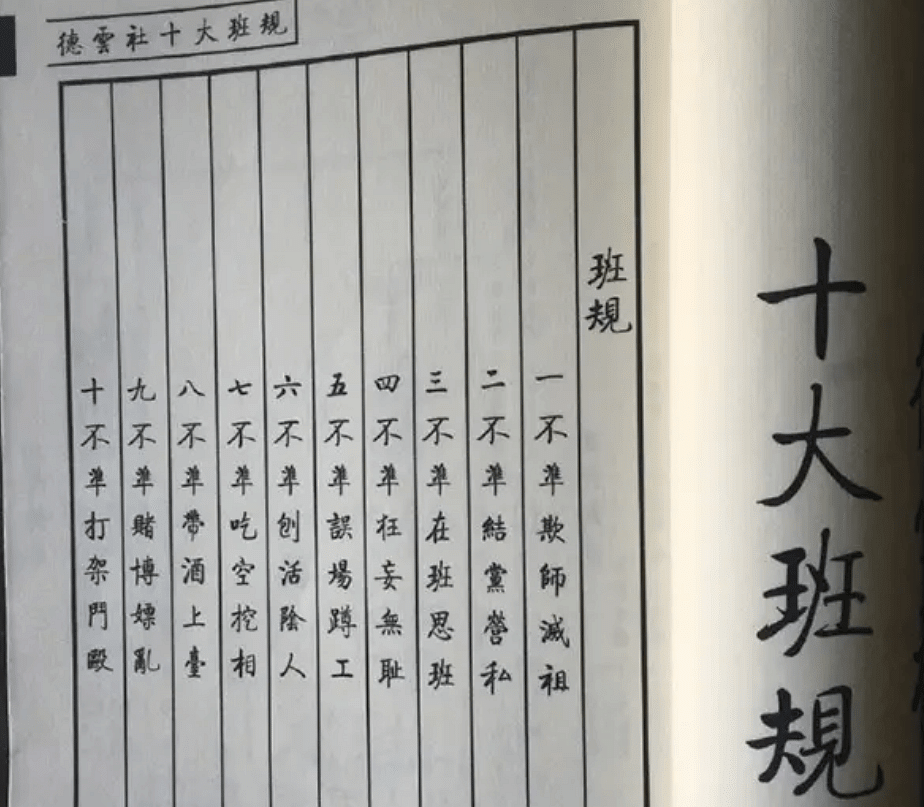 十大班規
德雲社十大班規
班規
一不準欺師滅祖
二不準結黨營私
三不準在班思班
四不準狂妄無耻
五不準誤場蹲工
六不準刨活陰人
七不準吃空挖相
八不準帶酒上臺
九不準賭博嫖亂
十不準打架鬥毆